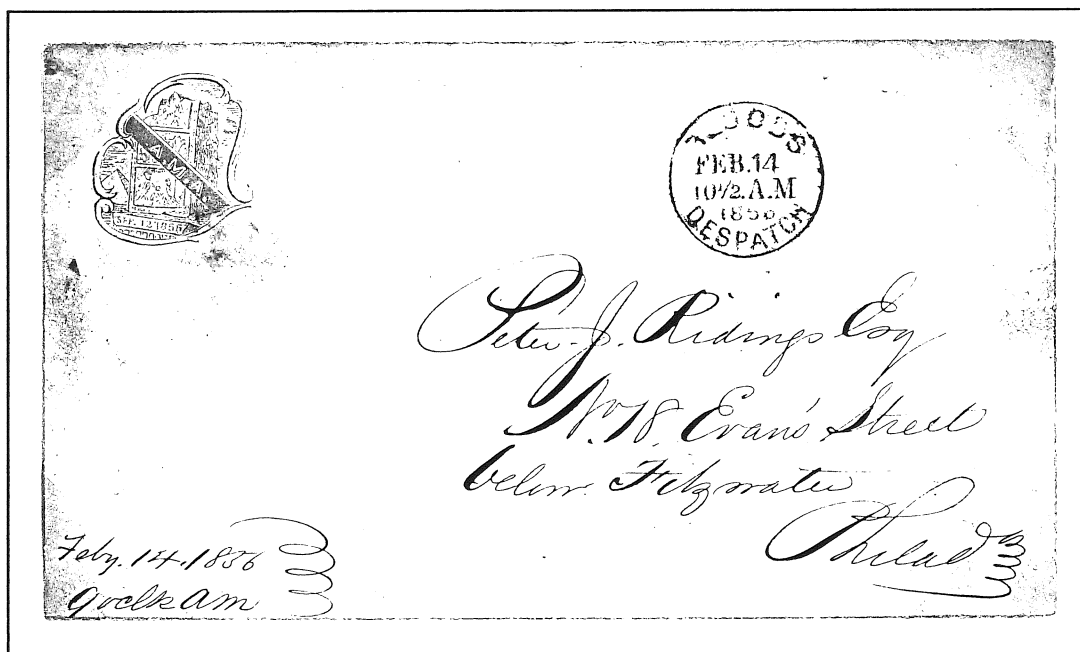 A.M.A.
SEP. 13 1855
FLOODS
FEB.14
10½.A.M
1856
DESPATCH
Peter. J. Ridings Esq
No. 78. Evan's Street
below. Fitzwater
Philad
Feby. 14. 1856
9 oclk AM